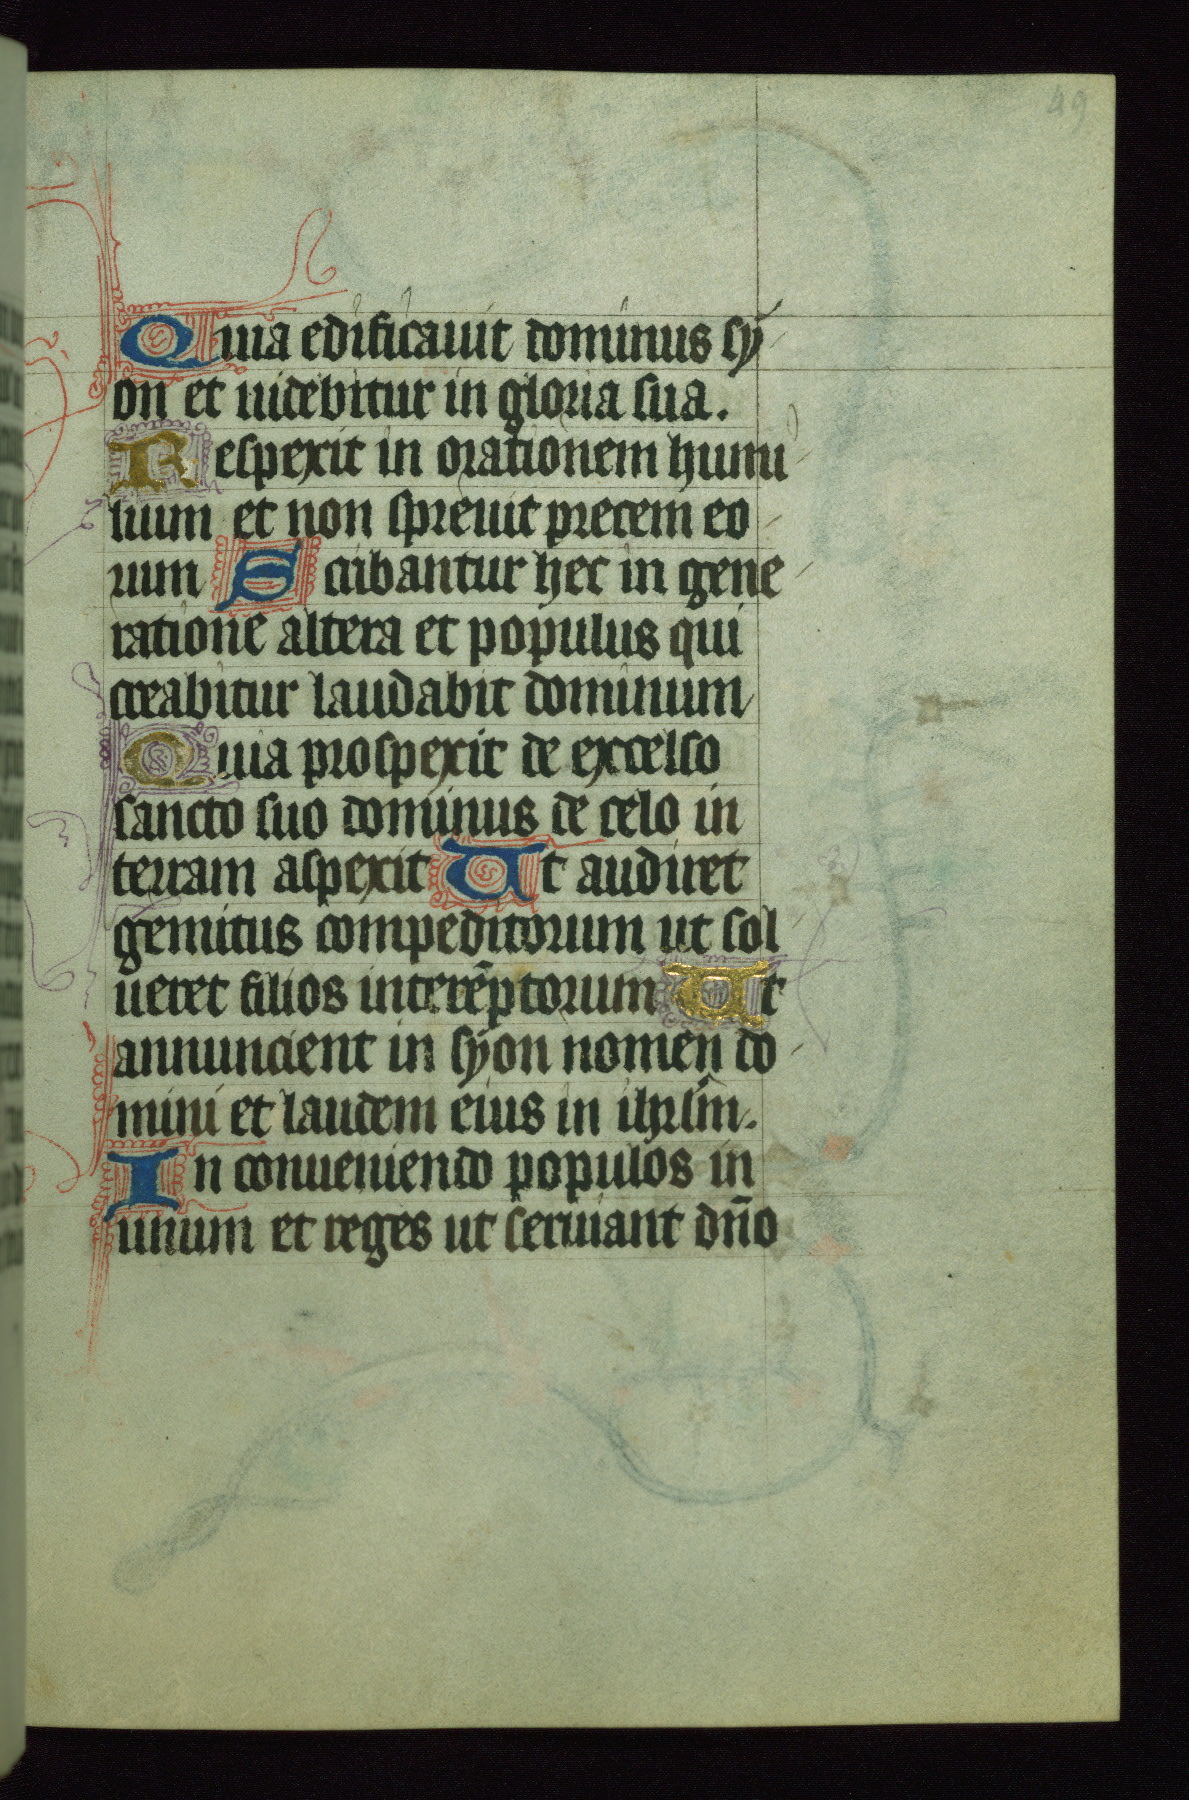 49
Quia edificauit dominus sy
on et uidebitur in gloria sua.
Respexit in orationem humi
lium et non spreuit precem eo
rum Scribantur hec in gene
ratione altera et populus qui
creabitur laudabit dominum
Quia prospexit de excelso
sancto suo dominus de celo in
terram aspexit Ut audiret
gemitus compeditorum ut sol
ueret filios interẽptorum Ut
annuncient in syon nomen do
mini et laudem eius in ihrlm̃.
In conueniendo populos in
unum et reges ut seruiant dn̄o